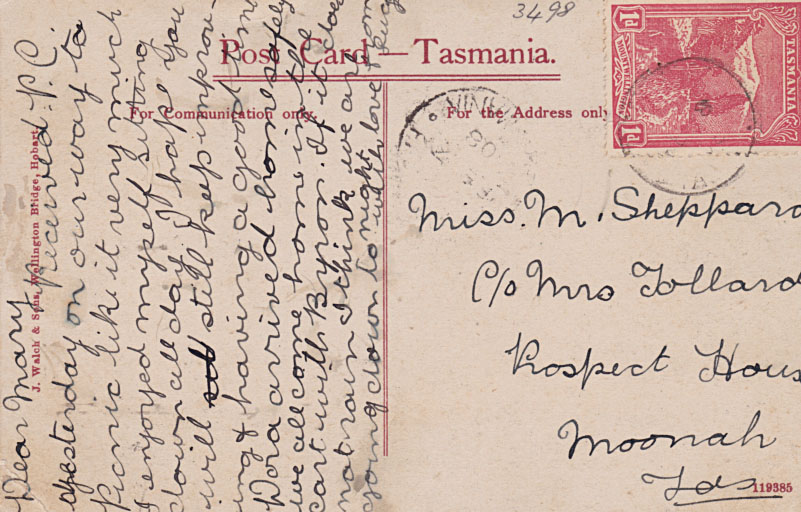 3498
Post Card — Tasmania.
For Communication only.
For the Address only
1d
1d
TASMANIA
J. Walch & Sons, Wellington Bridge, Hobart.
Miss. M. Sheppard
C/o Mrs Tollard
Rospect Hous
Moonah
Tas
119385
Dear Mary
Received P.C.
yesterday on our way to
Picnic like it very much
I enjoyed myself sitting
down all day I hope you
will still keep improv-
ing & having a good time
Dora arived home safely
we all come home in the
cart with Byron. If it does
not rain I think we are
going down to night
with love from
Lucy